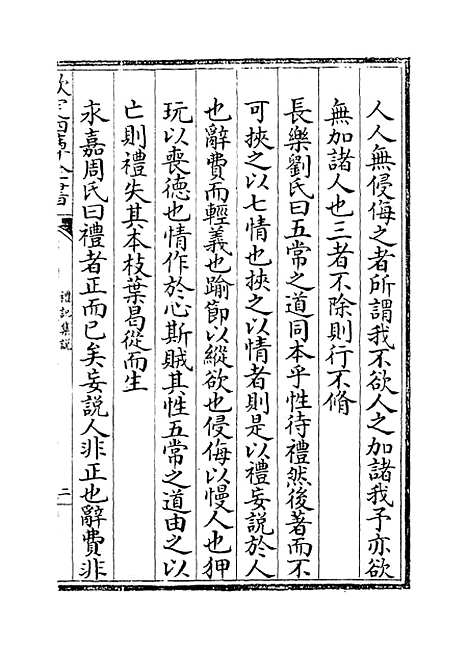 人人無侵侮之者所謂我不欲人之加諸我予亦欲
無加諸人也三者不除則行不脩
長樂劉氏曰五常之道同本乎性待禮然後著而不
可挾之以七情也挾之以情者則是以禮妄説於人
也辭費而輕義也踰節以縱欲也侵侮以慢人也狎
玩以喪德也情作於心斯賊其性五常之道由之以
亡則禮失其本枝葉曷從而生
永嘉周氏曰禮者正而已矣妄説人非正也辭費非
欽定四庫全書
禮記集説
二